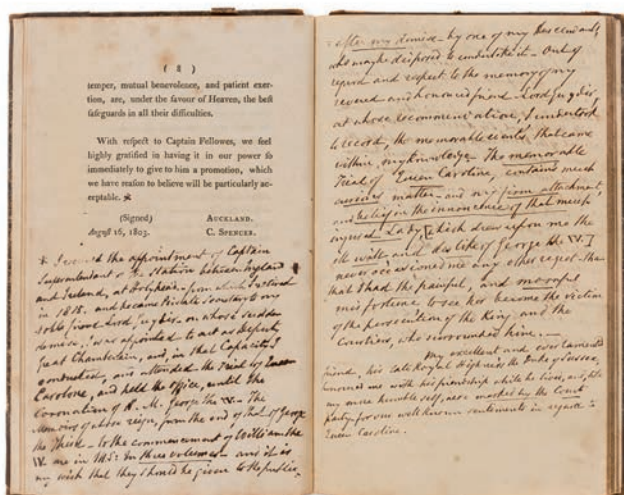 ( 8 )
temper, mutual benevolence, and patient exer-
tion, are, under the favour of Heaven, the best
safeguards in all their difficulties.
With respect to Captain Fellowes, we feel
highly gratified in having it in our power so
immediately to give to him a promotion, which
we have reason to believe will be particularly ac-
ceptable. *
(Signed) AUCKLAND.
August 16, 1803. C. SPENCER.
* I received the appointment of Captain
Superintendant of the Station between England
and Ireland, at Holyhead - from which I retired
in 1818. and became Private Secretary to my
noble friend Lord Gwydir - on whose sudden
demise, I was appointed to act as Deputy
Great Chamberlain, and, in that Capacity I
conducted, and attended the Trial of Queen
Caroline, and held the office, until the
Coronation of H. M. George the IV. - The
Memoirs of whose reign, from the end of that of George
the Third - to the commencement of William the
IV. are in MS: in three volumes - and it is
my wish that they should be given to the public -
after my demise - by one of my Descendants,
who may be disposed to undertake it - Out of
regard and respect to the memory of my
revered and honoured friend Lord Gwydir,
at whose recommendation, I undertook
to record, the memorable events, that came
within, my knowledge - The memorable
Trial of Queen Caroline, contains much
matter - and my firm attachment,
and belief in the innocence of that much
injured Lady [which drew upon me the
ill will and dislike of George the IV.]
never occasioned me any other regret - than
that I had the painful, and
misfortune to see her become the victim
of the persecution of the King and the
Courtiers, who surrounded him. -
My excellent and ever lamented
friend, his late Royal Highness the Duke of Sussex,
honoured me with his friendship while he lived, and, like
my more humble self, was marked by the Court
party - for our well known sentiments in regard to
Queen Caroline.